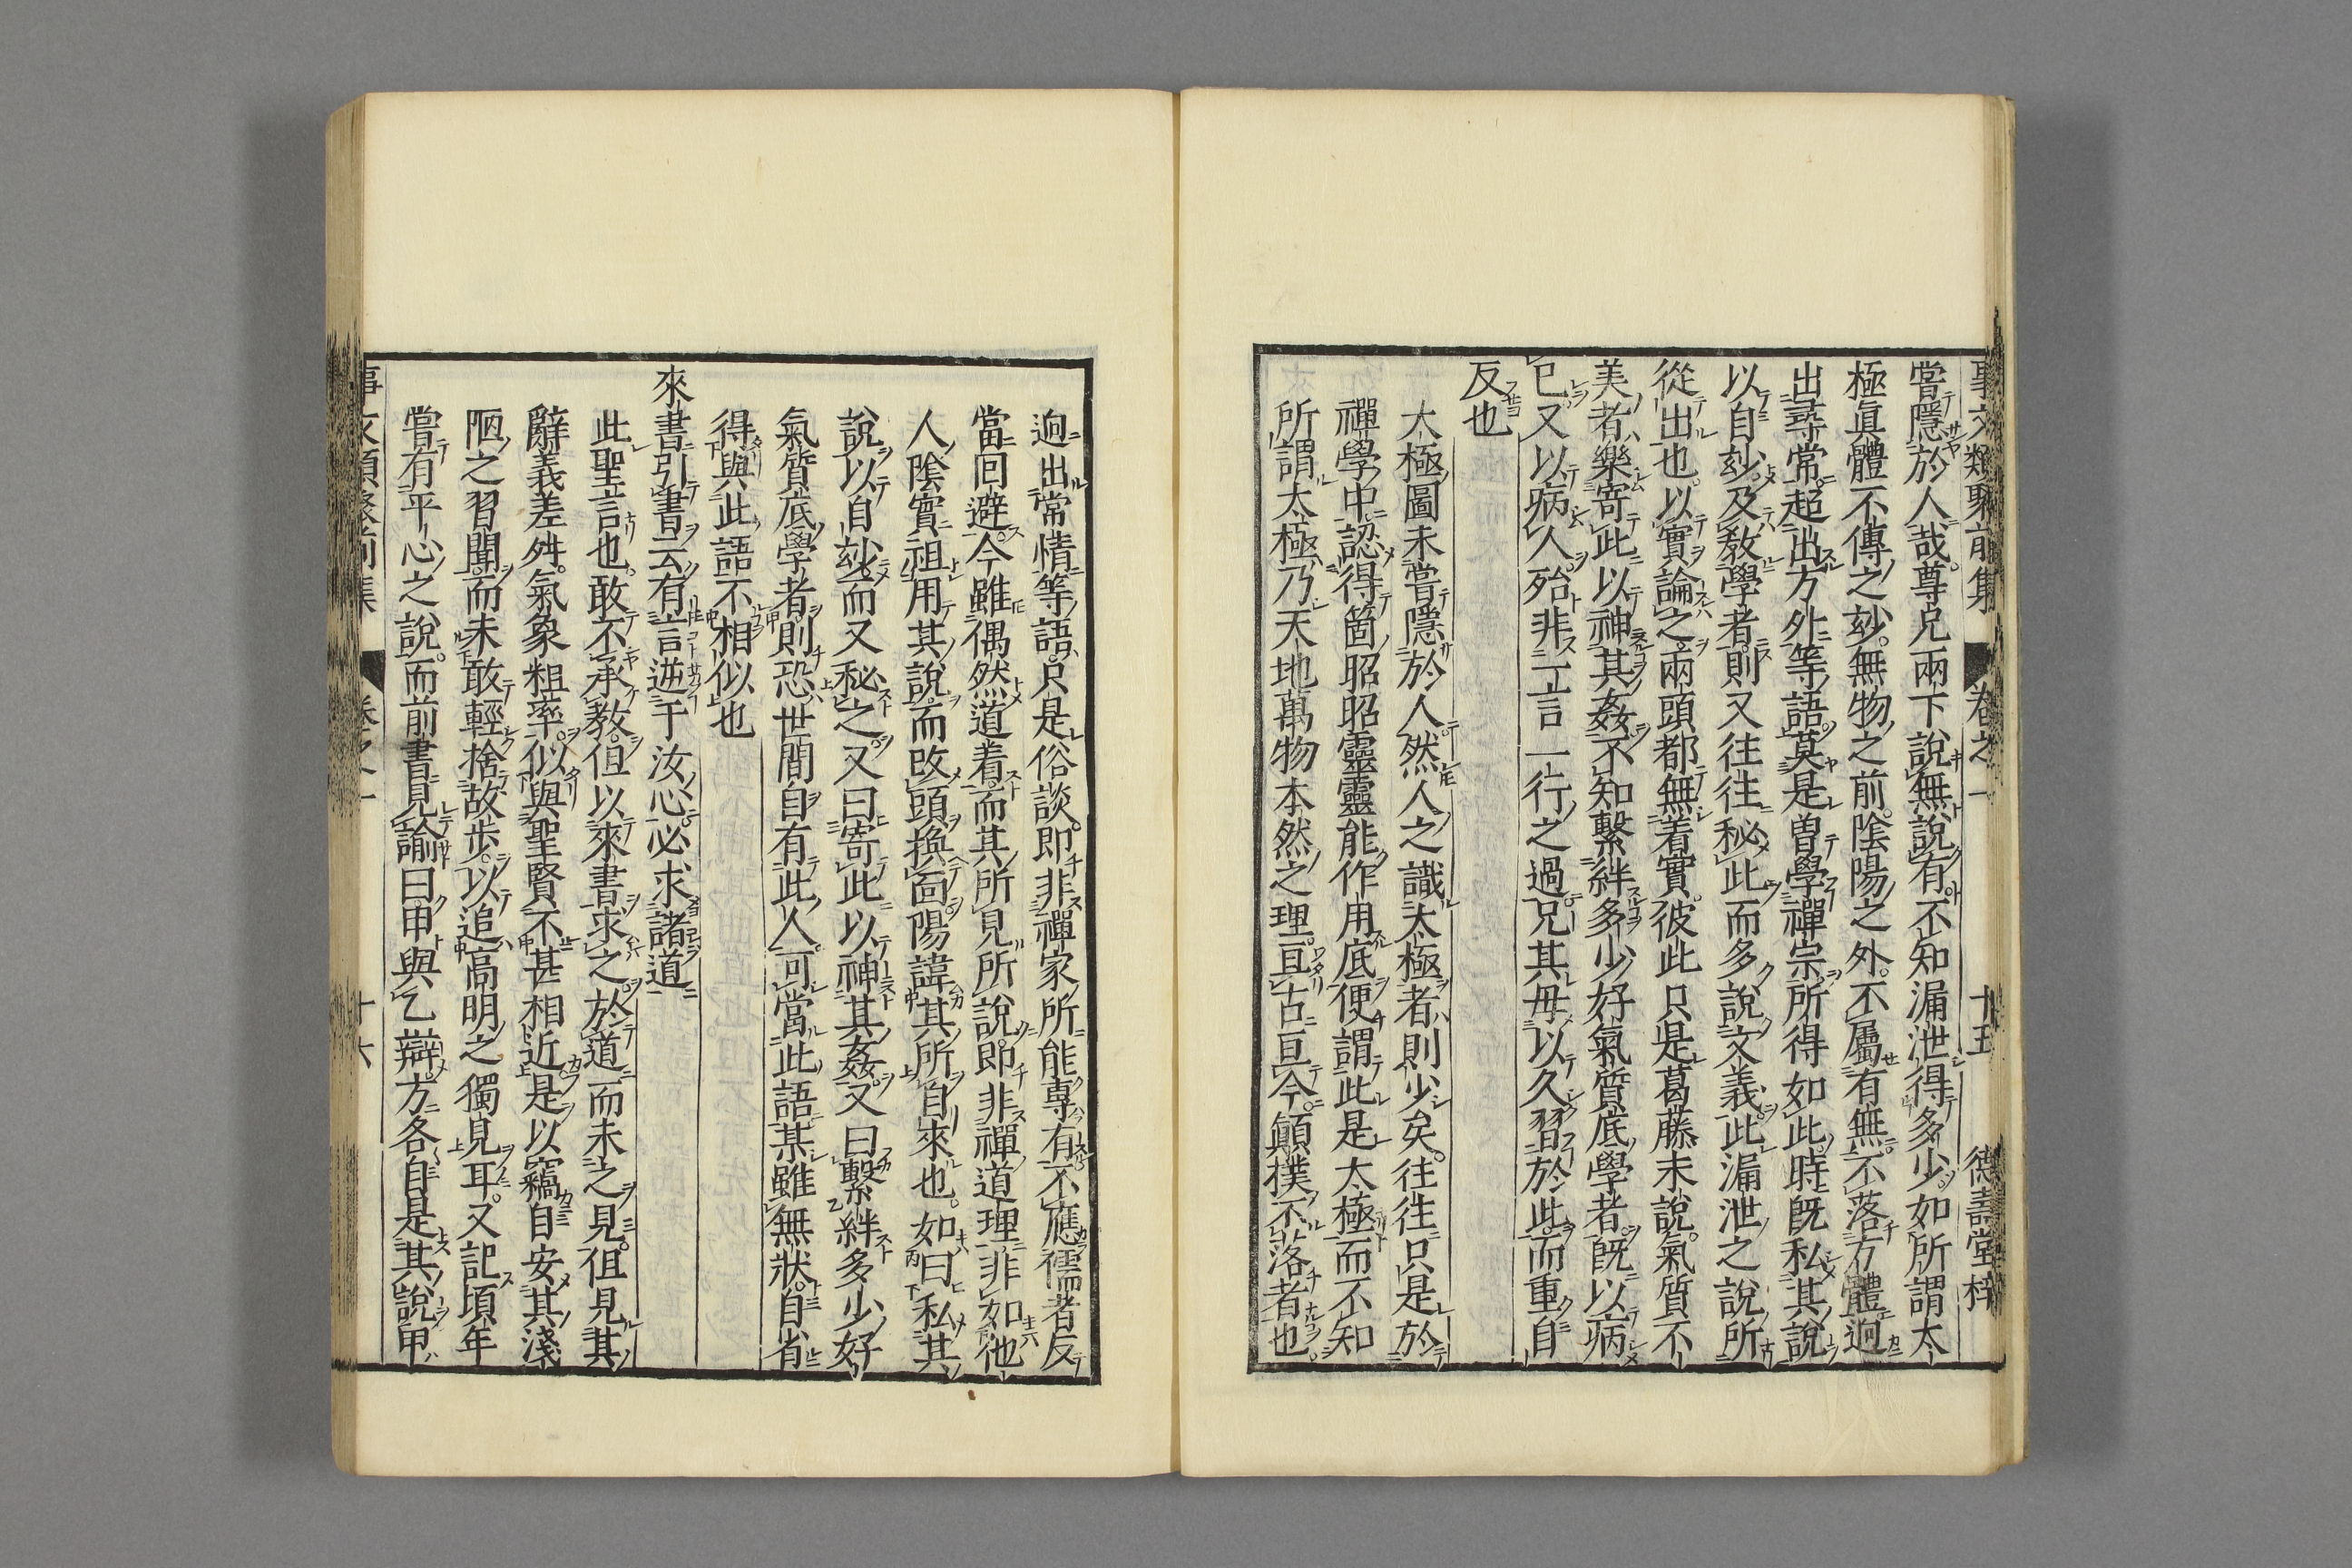 事文類聚前集 卷之一 十五 德壽堂梓
嘗隱於人哉。尊兄兩下說無說有不知漏泄得多少。如所謂太
極眞體不傳之玅。無物之前。陰陽之外。不屬有無。不落方體迥
出尋常。超出方外等語莫是曽學禪宗所得如此。時旣私其說
以自玅及敎學者則又往往秘此而多說文義此漏泄之說所
從出也。以實論之兩頭都無着實。彼此只是葛藤末說。氣質不
美者樂寄此以神其姦不知繫絆多少好氣質底學者。旣以病
已又以病人殆非一言一行之過兄其毋以久習於此而重自
反也
太極圖未嘗隱於人然人之識太極者則少矣。往往只是於
禪學中認得箇昭昭靈靈能作用底便謂此是太極而不知
所謂太極乃天地萬物本然之理亘古亘今顚撲不落者也。
迥出常情等語只是俗談。即非禪家所能專有不應儒者反
當回避。今雖偶然道着。而其所見所說即非禪道理非如他
人陰實祖用其說。而改頭換面陽諱其所自來也。如曰私其
說以自玅而又秘之又曰寄此以神其姦。又曰繫絆多少好
氣質底學者則恐世間自有此人可當此語某雖無狀。自省
得與此語不相似也
來書引書云有言逆于汝心必求諸道
此聖言也。敢不承敎。但以來書求之於道而未之見。但見其
辭義差舛。氣象粗率。似與聖賢不甚相近是以竊自安其淺
陋之習聞而未敢輕捨故步。以追高明之獨見耳。又記頃年
嘗有平心之說。而前書見諭曰甲與乙辯方各自是其說甲
事文類聚前集 卷之一 十六